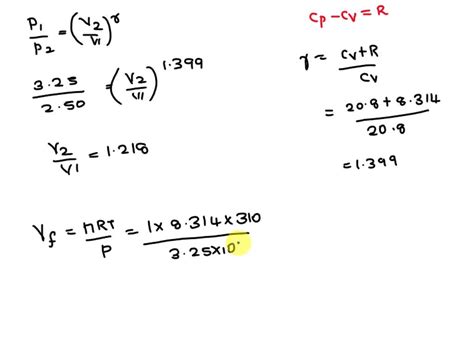 P1/P2 = (V2/V1)^γ
3.25/2.50 = (V2/V1)^1.399
V2/V1 = 1.218
Vf = nRT/P = 1 × 8.314 × 310 / 3.25×10
Cp - Cv = R
γ = Cv+R/Cv
= 20.8 + 8.314/20.8
= 1.399